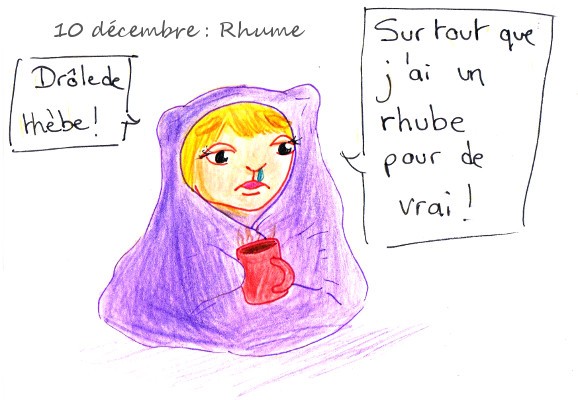 10 décembre : Rhume
Drôle de
thèbe !
Surtout que
j'ai un
rhube
pour de
vrai !